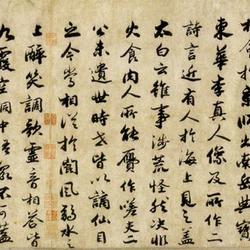 東華李真人像及所作二
詩言近有人於海上見之蓋
太白云雖事涉荒怪然決非
火食肉人所能贗作嗟夫二
公未遺世時皆以謫仙目
之今當相從於閬風弱水之
上醉笑調歌靈音相答皆
九霞空洞中